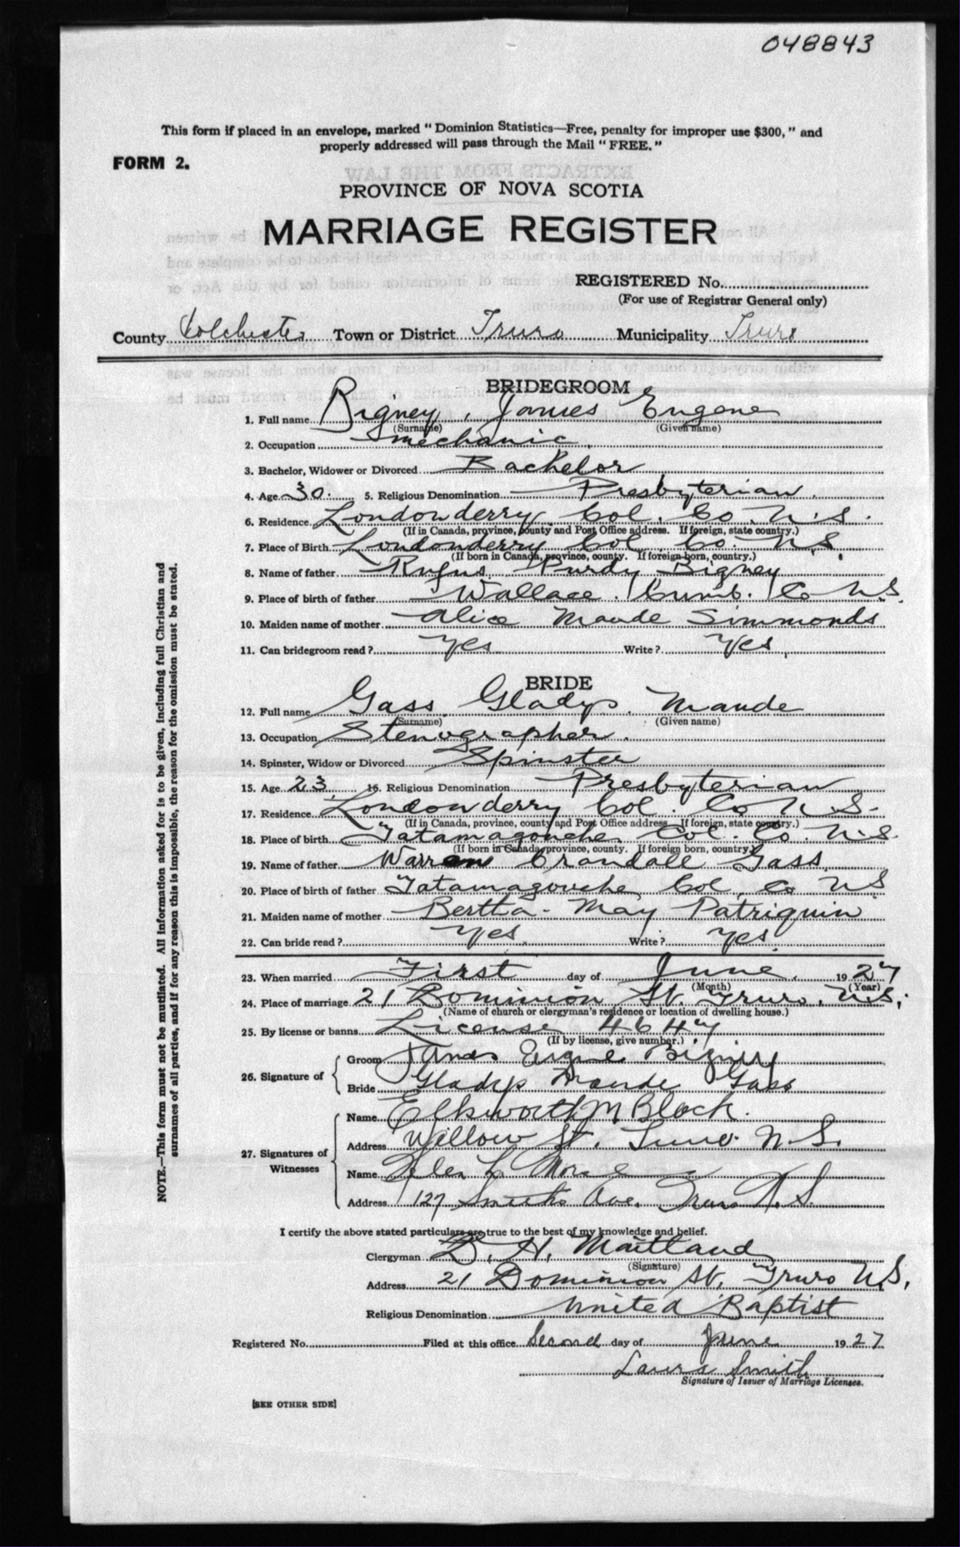 048843
This form if placed in an envelope, marked "Dominion Statistics—Free, penalty for improper use $300," and
properly addressed will pass through the Mail "FREE."
FORM 2.
PROVINCE OF NOVA SCOTIA
MARRIAGE REGISTER
REGISTERED No.
(For use of Registrar General only)
County Colchester Town or District Truro Municipality Truro
BRIDEGROOM
1. Full name Bigney, James Eugene
(Surname) (Given name)
2. Occupation mechanic
3. Bachelor, Widower or Divorced Bachelor
4. Age 30. 5. Religious Denomination Presbyterian
6. Residence Londonderry Col. Co N.S.
(If in Canada, province, county and Post Office address. If foreign, state country.)
7. Place of Birth Londonderry Col Co. N.S.
(If born in Canada, province, county. If foreign born, country.)
8. Name of father Rufus Purdy Bigney
9. Place of birth of father Wallace, Cumb. Co N.S.
10. Maiden name of mother Alice Maude Simmonds
11. Can bridegroom read? Yes Write? Yes
BRIDE
12. Full name Gass Gladys Maude
(Surname) (Given name)
13. Occupation Stenographer.
14. Spinster, Widow or Divorced Spinster
15. Age 23 16. Religious Denomination Presbyterian
17. Residence Londonderry Col Co N S.
(If in Canada, province, county and Post Office address. If foreign, state country.)
18. Place of birth Tatamagouche Col. Co. N.S.
(If born in Canada, province, county. If foreign born, country)
19. Name of father Warren Crandall Gass
20. Place of birth of father Tatamagouche Col. Co NS
21. Maiden name of mother Bertha May Patriquin
22. Can bride read? Yes. Write? Yes.
23. When married First day of June 1927
(Month) (Year)
24. Place of marriage 21 Dominion St. Truro, N.S.
(Name of church or clergyman's residence or location of dwelling house.)
25. By license or banns License 4647
(If by license, give number.)
26. Signature of
Groom James Eugene Bigney
Bride Gladys Maude Gass
27. Signatures of Witnesses
Name Ellsworth M Black.
Address Willow St. Truro N.S.
Name Helen L. Morse
Address 127 Smith Ave. Truro N.S
I certify the above stated particulars are true to the best of my knowledge and belief.
Clergyman D. H. Maitland
(Signature)
Address 21 Dominion St, Truro N.S.
Religious Denomination United Baptist
Registered No. Filed at this office Second day of June 1927
Laura Smith
Signature of Issuer of Marriage Licenses.
[SEE OTHER SIDE]
NOTE.—This form must not be mutilated. All information asked for is to be given, including full Christian and
surnames of all parties, and if for any reason this is impossible, the reason for the omission must be stated.